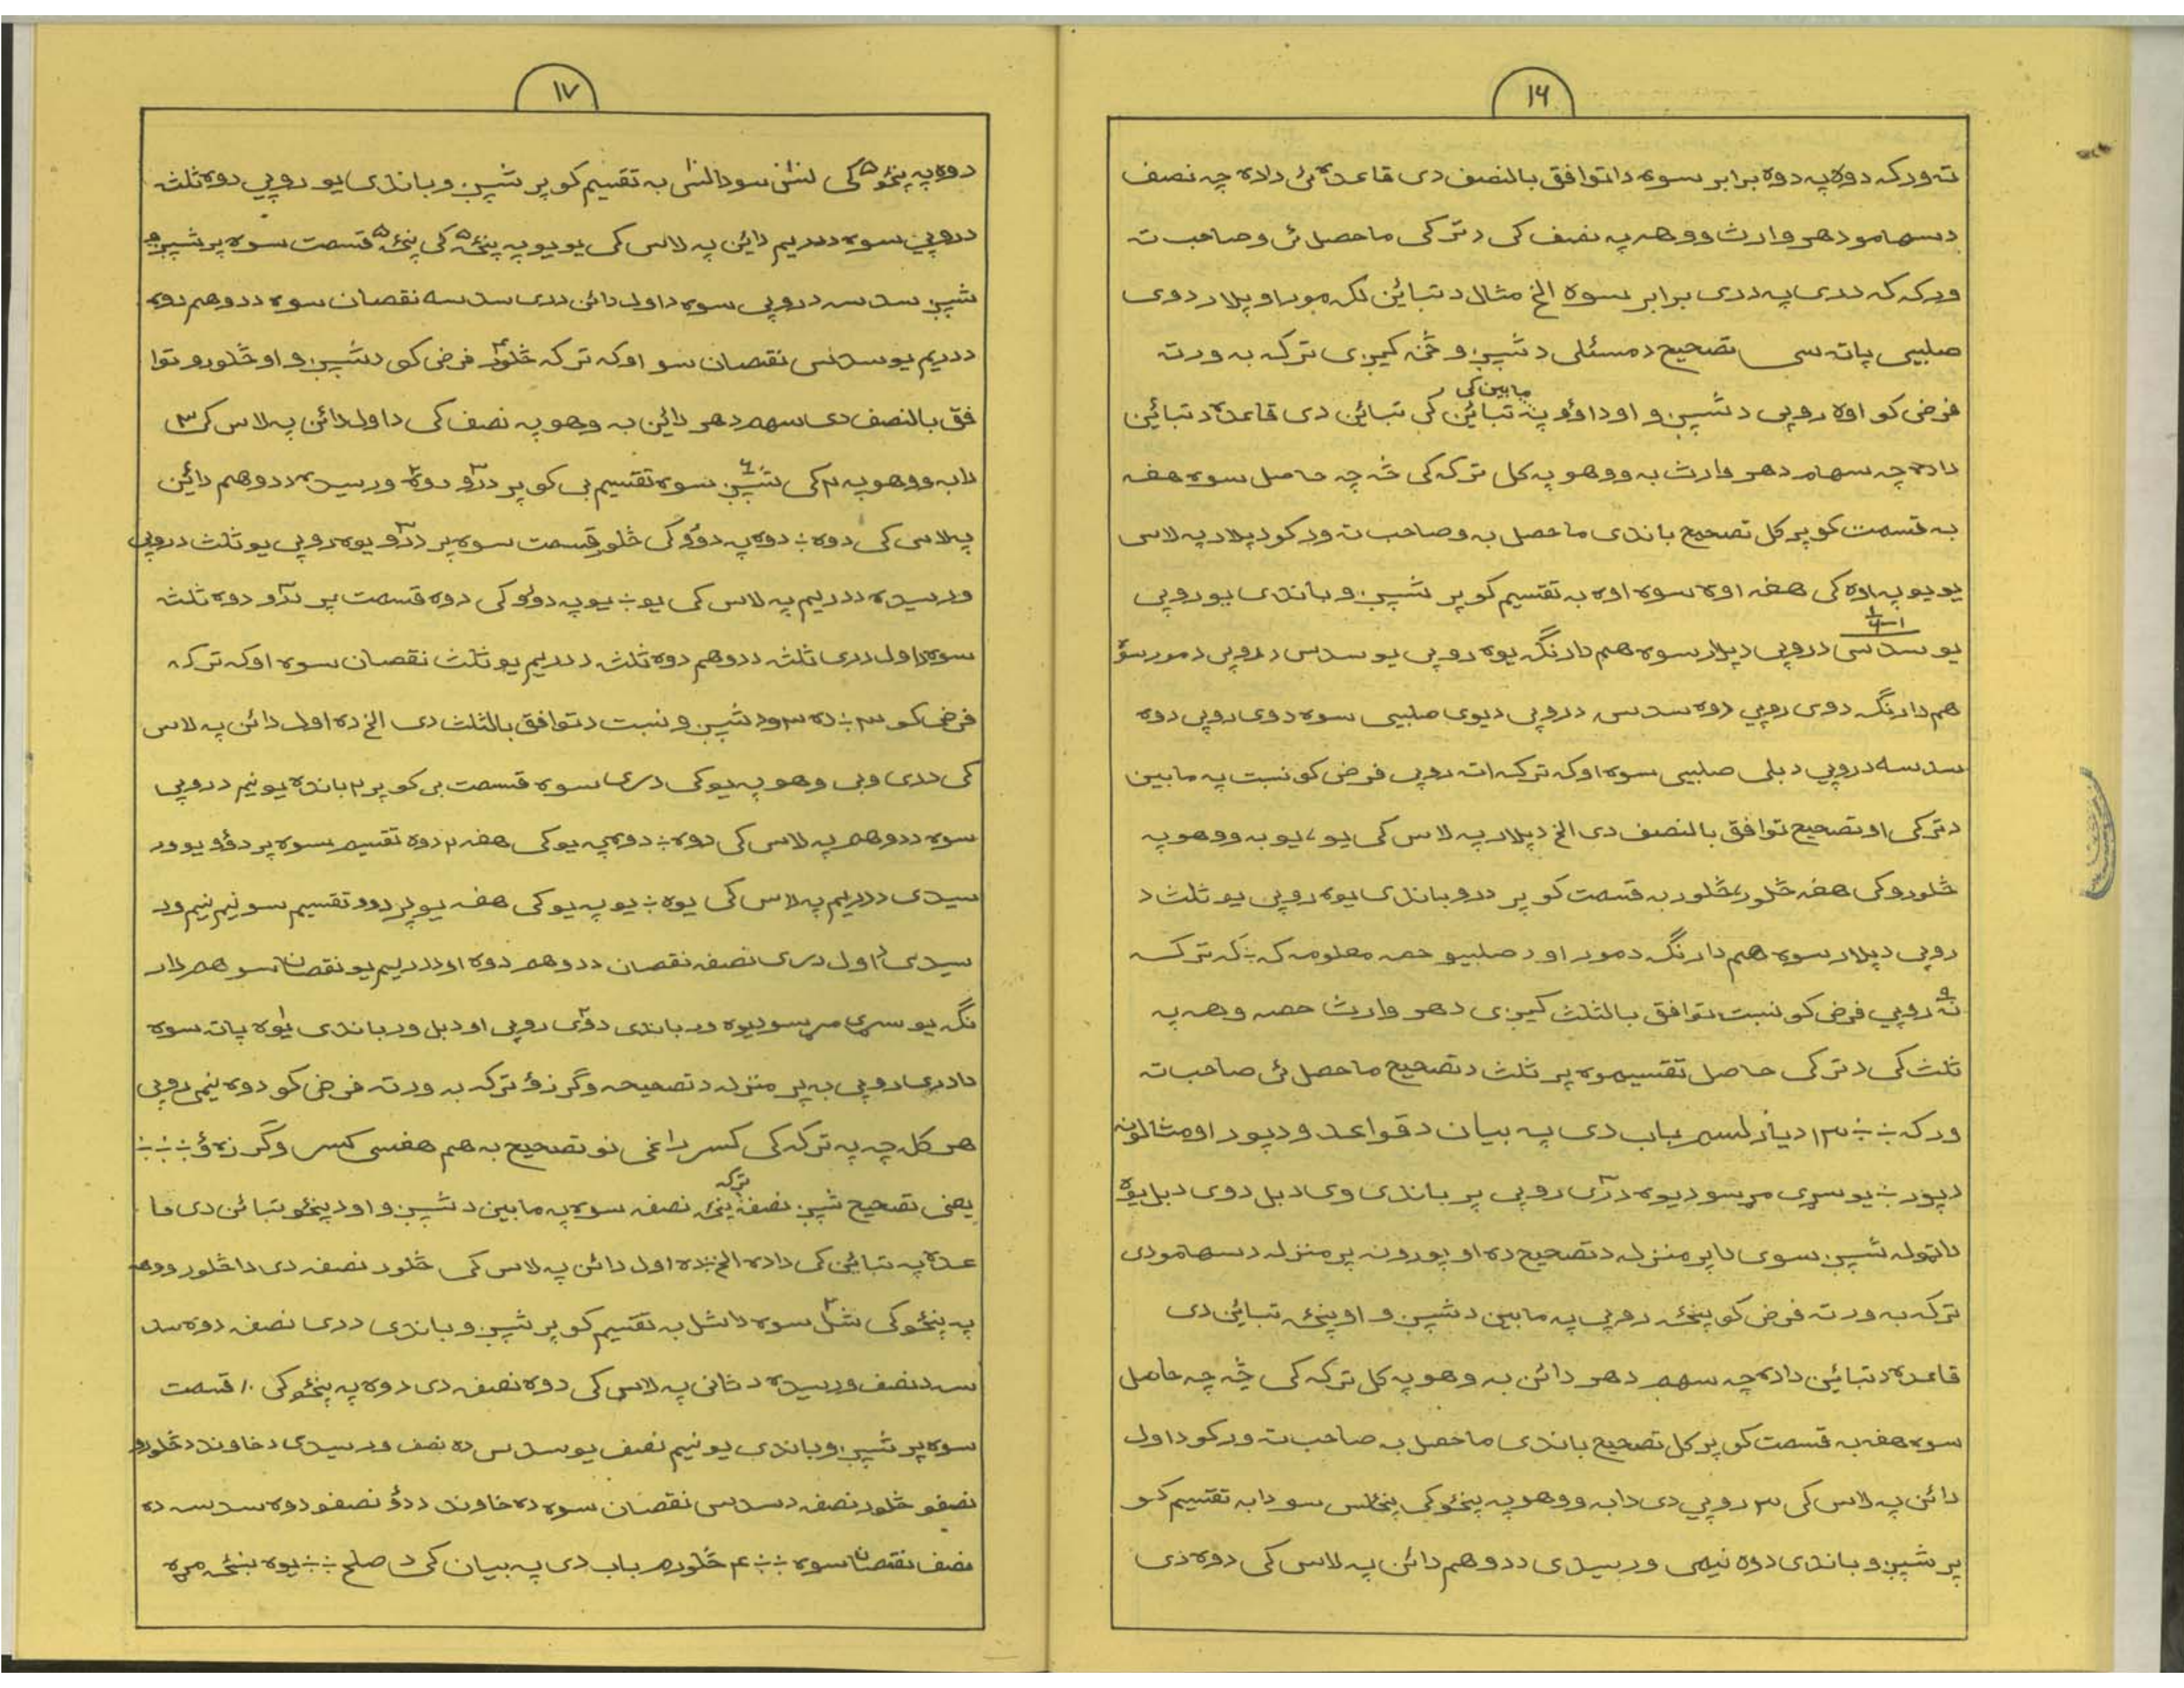 ۱۶
ته ورکه دوه په دوه برابر سوه دا توافق بالنصف دی قاعده ئی دا ده چه نصف
د سهامو د هر وارث ووهه په نصف کی د ترکی ماحصل ئی و صاحب ته
ورکه که دری په دری برابر سوه الخ مثال د تبائین لکه مور او پلار دوی
صلبیی پاته سی تصحیح د مسئلی د شپږو څنه کیږی ترکه به ورته
فرض کو اوه روپی د شپږو او د اوو په مابین کی تبائن دی قاعده د تبائین
داده چه سهام د هر وارث به ووهو په کل ترکه کی څه چه حاصل سوه هغه
به قسمت کو پر کل تصحیح باندی ماحصل به و صاحب ته ورکو د پلار په لاس
یو یو په اوه کی هغه اوه سوه اوه به تقسیم کو پر شپږو باندی یو روپی
یو سدسی د روپی د پلار سوه هم دارنگه یوه روپی یو سدس د روپی د مور سوه
هم دارنگه دوی روپی دوه سدس د روپی د یوی صلبیی سوه دوی روپی دوه
سدسه د روپی د بلی صلبیی سوه او که ترکه اته روپی فرض کو نسبت په مابین
د ترکی او تصحیح توافق بالنصف دی الخ د پلار په لاس کی یو، یو به ووهو په
څلورو کی هغه څلور، څلور به قسمت کو پر درو باندی یوه روپی یو ثلث د
روپی د پلار سوه هم دارنگه د مور او د صلبیو حصه معلومه که ÷ که ترکه
نه۹ روپی فرض کو نسبت توافق بالثلث کیږی د هر وارث حصه وهه په
ثلث کی د ترکی حاصل تقسیموه پر ثلث د تصحیح ماحصل ئی صاحب ته
ورکه ÷ ÷ ۱۳ دیارلسم باب دی په بیان د قواعد و د پور او مثالونه
د پور ÷ یو سړی مړ سو د یوه دری۳ روپی پر باندی وی د بل دوی د بل یوه
دا ټوله شپږ سوی دا پر منزله د تصحیح ده او پورونه پر منزله د سهامو دی
ترکه به ورته فرض کو پنځه روپی په مابین د شپږو او پنځه تبائین دی
قاعده د تبائین داده چه سهم د هر دائن به وهو په کل ترکه کی څه چه حاصل
سوه هغه به قسمت کو پر کل تصحیح باندی ماحصل به صاحب ته ورکو د اول
دائن په لاس کی ۳ روپی دی دا به ووهو په پنځو کی پنځلس سو دا به تقسیم کو
پر شپږو باندی دوه نیمی ورسیدی د دوهم دائن په لاس کی دوه دی
۱۷
دوه په پنځو۵ کی لس سو دا لس به تقسیم کو پر شپږو باندی یو روپی دوه ثلث
د روپی سوه د دریم دائن په لاس کی یو یو په پنځه۵ کی پنځه۵ قسمت سوه پر شپږو
شپږ سدسه د روپی سوه د اول دائن دری سدسه نقصان سوه د دوهم دوه
د دریم یو سدس نقصان سو او که ترکه څلور۴ فرض کی د شپږو او څلورو توا
فق بالنصف دی سهم د هر دائن به وهو په نصف کی د اول دائن په لاس کی ۳
دا به ووهو په ۲ کی شپږ۶ سوه تقسیم یی کو پر درو۳ دوه۲ ورسیده د دوهم دائن
په لاس کی دوه ÷ دوه په دوو کی څلور قسمت سوه پر درو۳ یوه روپی یو ثلث د روپی
ورسیده د دریم په لاس کی یو ÷ یو په دوو کی دوه قسمت پر درو۳ دوه ثلث
سوه د اول دری ثلث د دوهم دوه ثلث د دریم یو ثلث نقصان سوه او که ترکه
فرض کو ۳ ÷ ده ۳ و د شپږو نسبت د توافق بالثلث دی الخ ده اول دائن په لاس
کی دری وی وهو په یو کی دری سوه قسمت یی کو پر ۲ بانده یو نیم د روپی
سوه د دوهم په لاس کی دوه ÷ دوه په یو کی هغه ۲ دوه تقسیم سوه پر دوو یو ور
سیدی د دریم په لاس کی یوه ÷ یو په یو کی هغه یو پر دوو تقسیم سو نیم نیم ور
سیدی د اول دری نصفه نقصان د دوهم دوه او د دریم یو نقصان سو هم دار
نگه یو سړی مړ سو د یوه ور باندی دوی۲ روپی او د بل ور باندی یوه۱ پاته سوه
دا دری روپی به پر منزله د تصحیحه وگرزو ترکه به ورته فرض کو دوه نیمی روپی
هر کله چه په ترکه کی کسر راغی نو تصحیح به هم هغسی کسر وگرزوؤ ÷ ÷ ÷
یعنی تصحیح شپږ نصفه ترکه پنځه نصفه سوه په مابین د شپږو او د پنځو تبائن دی قا
عده په تبائین کی داده الخ ÷ ده اول دائن په لاس کی څلور نصفه دی دا څلور ووهه
په پنځو کی شل۲۰ سوه دا شل به تقسیم کو پر شپږو باندی دری نصف دوه سد
سه د نصف ورسیده د ثانی په لاس کی دوه نصفه دی دوه په پنځو کی ۱۰ قسمت
سوه پر شپږو باندی یو نیم نصف یو سدس ده نصف ورسیدی د خاوند د څلورو
نصفو څلور نصفه د سدس نقصان سوه ده خاوند د دوو نصفو دوه سدسه ده
نصف نقصان سوه ÷ ÷ ۱۴ څلورم باب دی په بیان کی د صلح ÷ ÷ یوه ښځه مړه